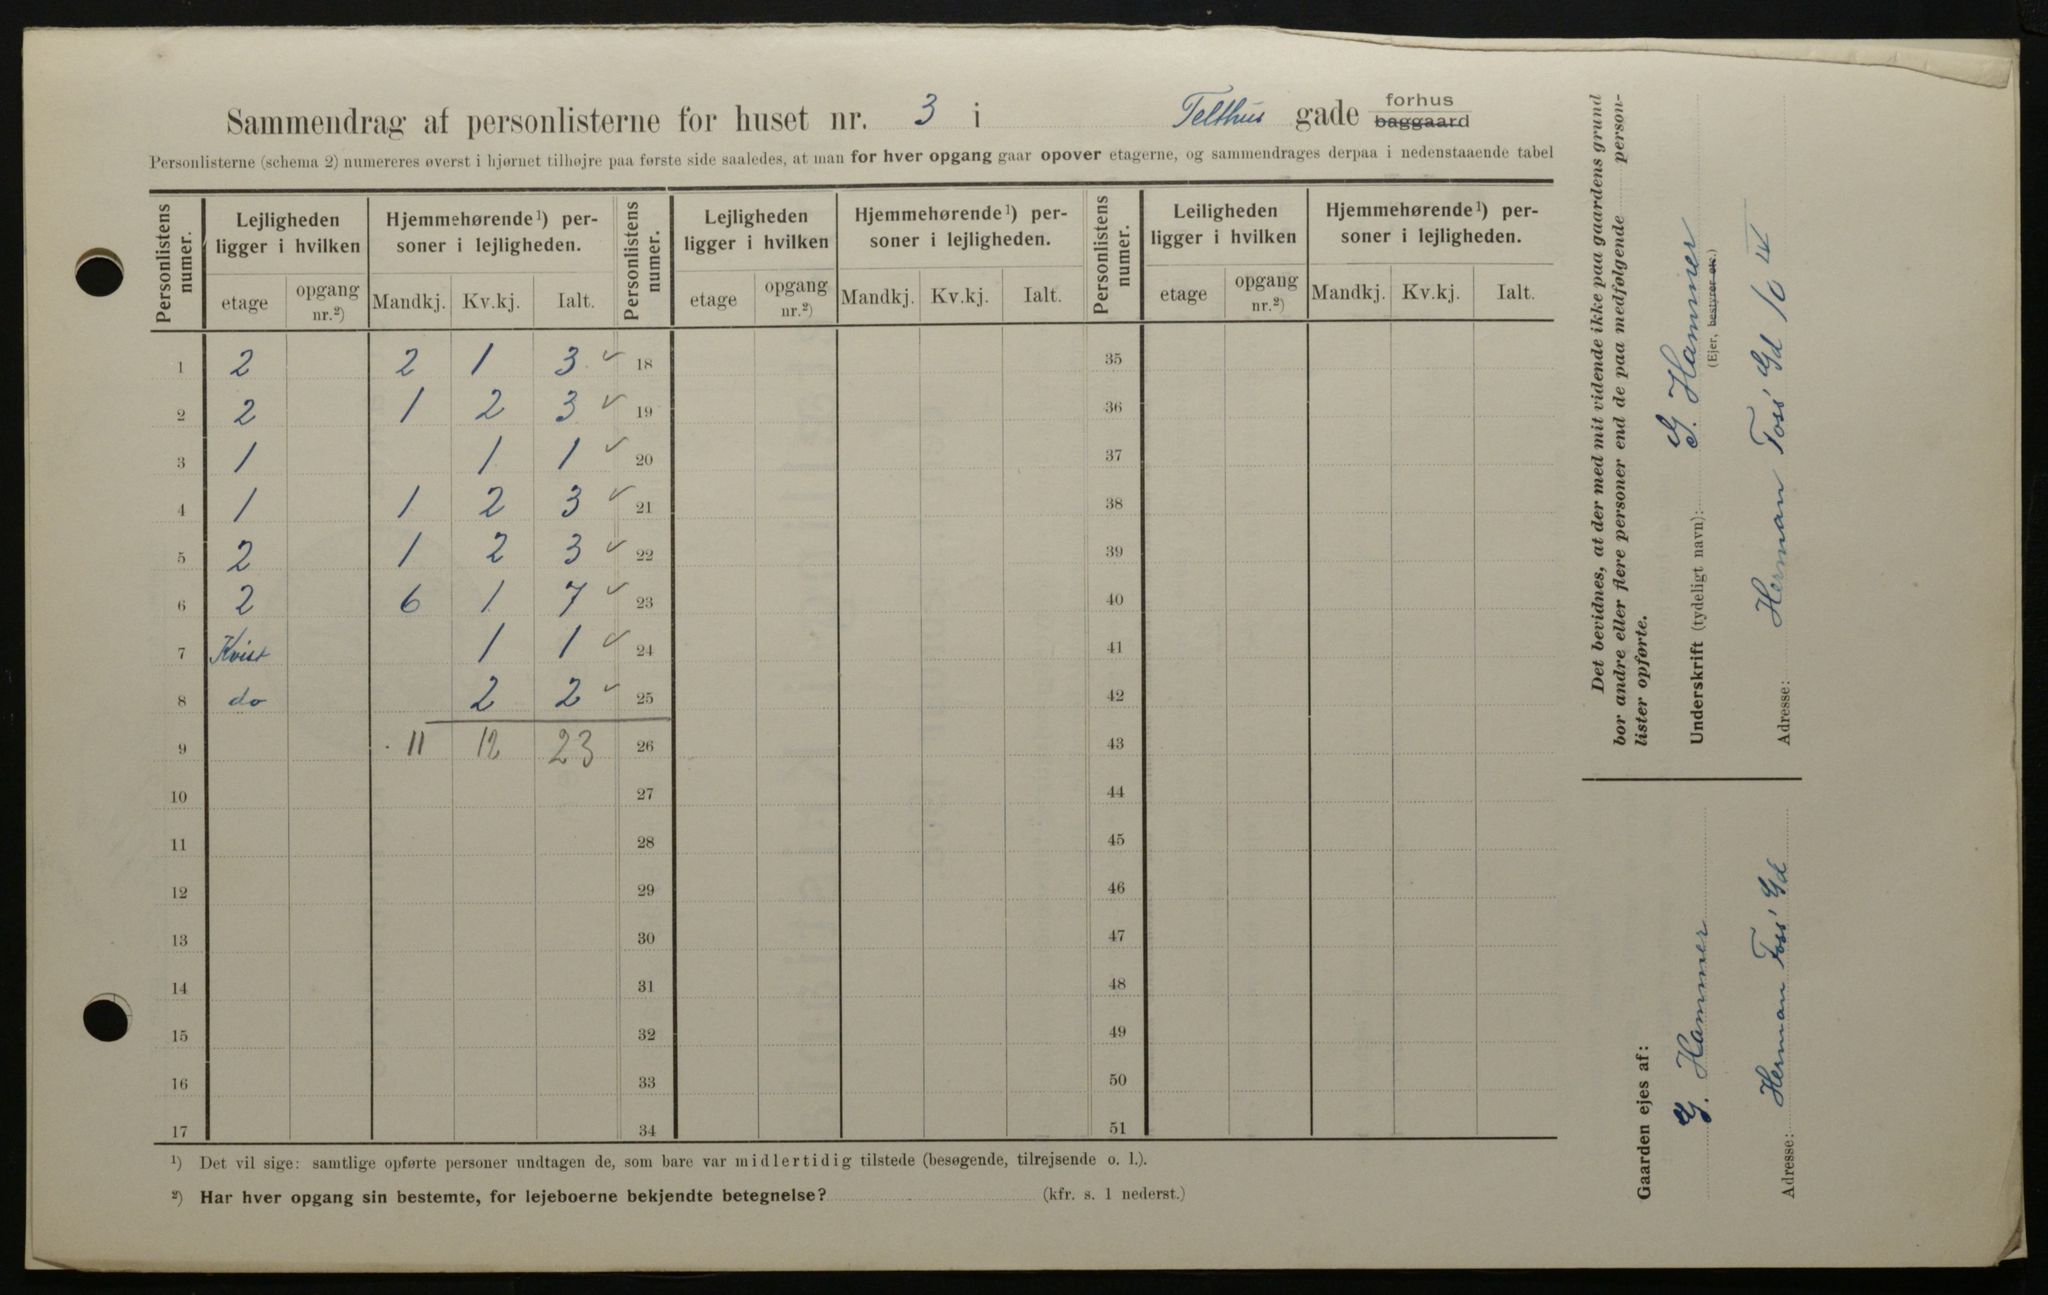 Sammendrag af personlisterne for huset nr. 3 i Telthus gade forhus baggaard
Personlisterne (schema 2) numereres øverst i hjørnet tilhøjre paa første side saaledes, at man for hver opgang gaar opover etagerne, og sammendrages derpaa i nedenstaaende tabel
Personlistens numer. Lejligheden ligger i hvilken Hjemmehørende¹) personer i lejligheden. Personlistens numer. Lejligheden ligger i hvilken Hjemmehørende¹) personer i lejligheden. Personlistens numer. Leiligheden ligger i hvilken Hjemmehørende¹) personer i lejligheden.
etage opgang nr.²) Mandkj. Kv.kj. Ialt. etage opgang nr.²) Mandkj. Kv.kj. Ialt. etage opgang nr.²) Mandkj. Kv.kj. Ialt.
1 2 2 1 3 ✓ 18 35
2 2 1 2 3 ✓ 19 36
3 1 1 1 ✓ 20 37
4 1 1 2 3 ✓ 21 38
5 2 1 2 3 ✓ 22 39
6 2 6 1 7 ✓ 23 40
7 Kvist 1 1 ✓ 24 41
8 do 2 2 ✓ 25 42
9 11 12 23 26 43
10 27 44
11 28 45
12 29 46
13 30 47
14 31 48
15 32 49
16 33 50
17 34 51
¹) Det vil sige: samtlige opførte personer undtagen de, som bare var midlertidig tilstede (besøgende, tilrejsende o. l.).
²) Har hver opgang sin bestemte, for lejeboerne bekjendte betegnelse? (kfr. s. 1 nederst.)
Det bevidnes, at der med mit vidende ikke paa gaardens grund
bor andre eller flere personer end de paa medfølgende person-
lister opførte.
Underskrift (tydeligt navn): G. Hammer
(Ejer, bestyrer etc.)
Adresse: Herman Foss' Gd 10 IV
Gaarden ejes af:
G. Hammer
Adresse: Herman Foss' Gd